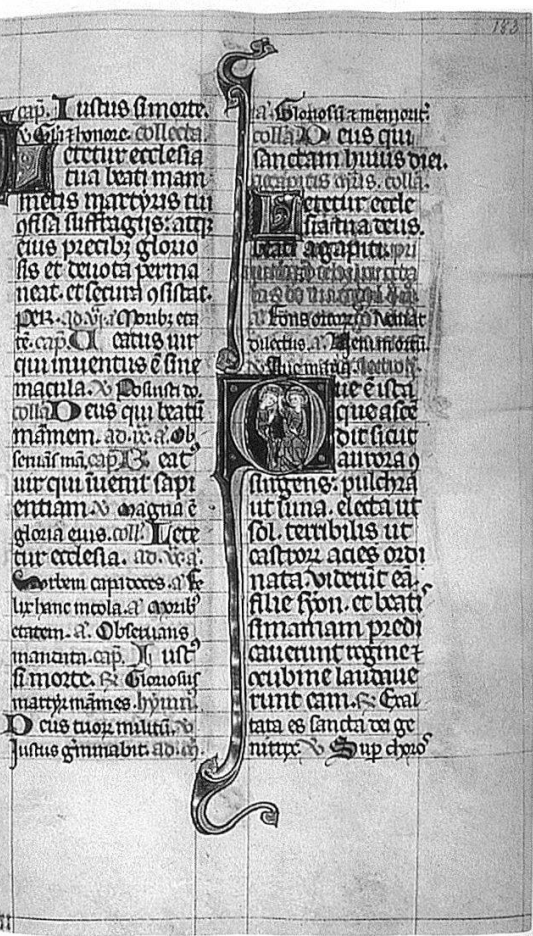 183
cap. Iustus si morte.
v Głia & honore. collecta.
Letetur ecclesia
tua beati mam
metis martyris tui
ꝯfisa suffragiis: atqꝫ
eius precibꝫ glorio
sis et deuota perma
neat. et secura ꝯsistat.
per. ad. vi. a Moribꝫ eta
tē. cap. Beatus uir
qui inuentus ē sine
macula. v Posuisti dñe
colła Deus qui beatū
māmem. ad. ix. a. Ob
seruās mā. cap. Beatꝰ
uir qui īuenit sapi
entiam v magna ē
gloria eius. coll. Lete
tur ecclesia. ad. vꝫ. a.
Orbem capadoces. a. Fe
lix hanc incola. a. Moribꝰ
etatem. a. Obseruans
mandata. cap. Iustꝰ
si morte. ꝶ Gloriosus
martyr māmes. hymnꝰ
Deus tuoꝝ militū. v
Iustus gīminabit. ad. m̄.
a. Gloriosū & memorit.
colła Deus qui
sanctam huius diei.
agapitis mr̄is. colła.
Letetur eccle
sia tua deus.
beati agapiti. pri
a Fons ortoꝝ
dilectus. a. Ueni in ortū.
v Aue maria. lectio.
Que ē ista
que asce
dit sicut
aurora ꝯ
surgens: pulchra
ut luna. electa ut
sol. terribilis ut
castroꝝ acies ordi
nata. viderūt eā.
filie syon. et beatis
simamam predi
cauerunt regine &
ꝯcubine laudaue
runt eam. ꝶ Exal
tata es sancta dei ge
nitrix. v Sup chorꝰ